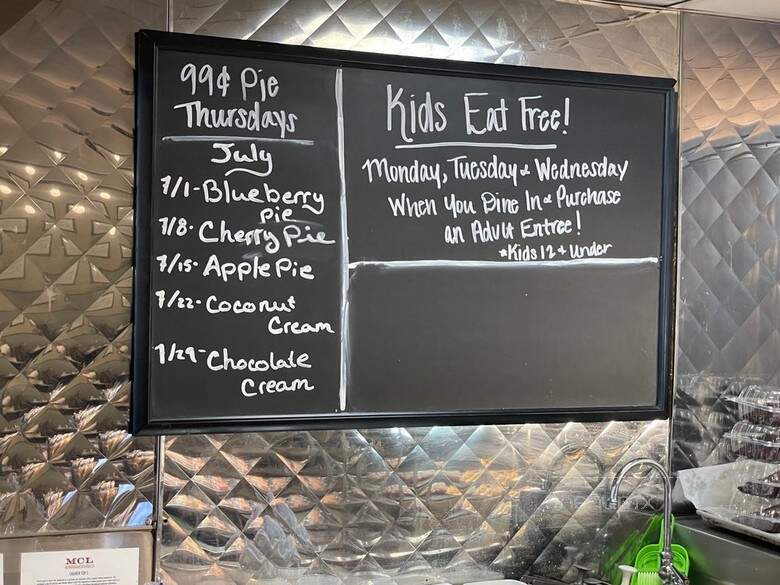 99¢ Pie
Thursdays
July
7/1-Blueberry
Pie
7/8- Cherry Pie
7/15- Apple Pie
7/22- Coconut
Cream
7/29- Chocolate
Cream
Kids Eat Free!
Monday, Tuesday & Wednesday
When you Dine In & Purchase
an Adult Entree!
*Kids 12 + Under
MCL